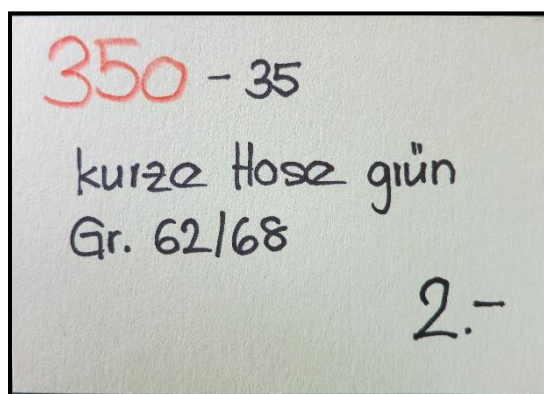 350 - 35
kurze Hose grün
Gr. 62/68
2.-